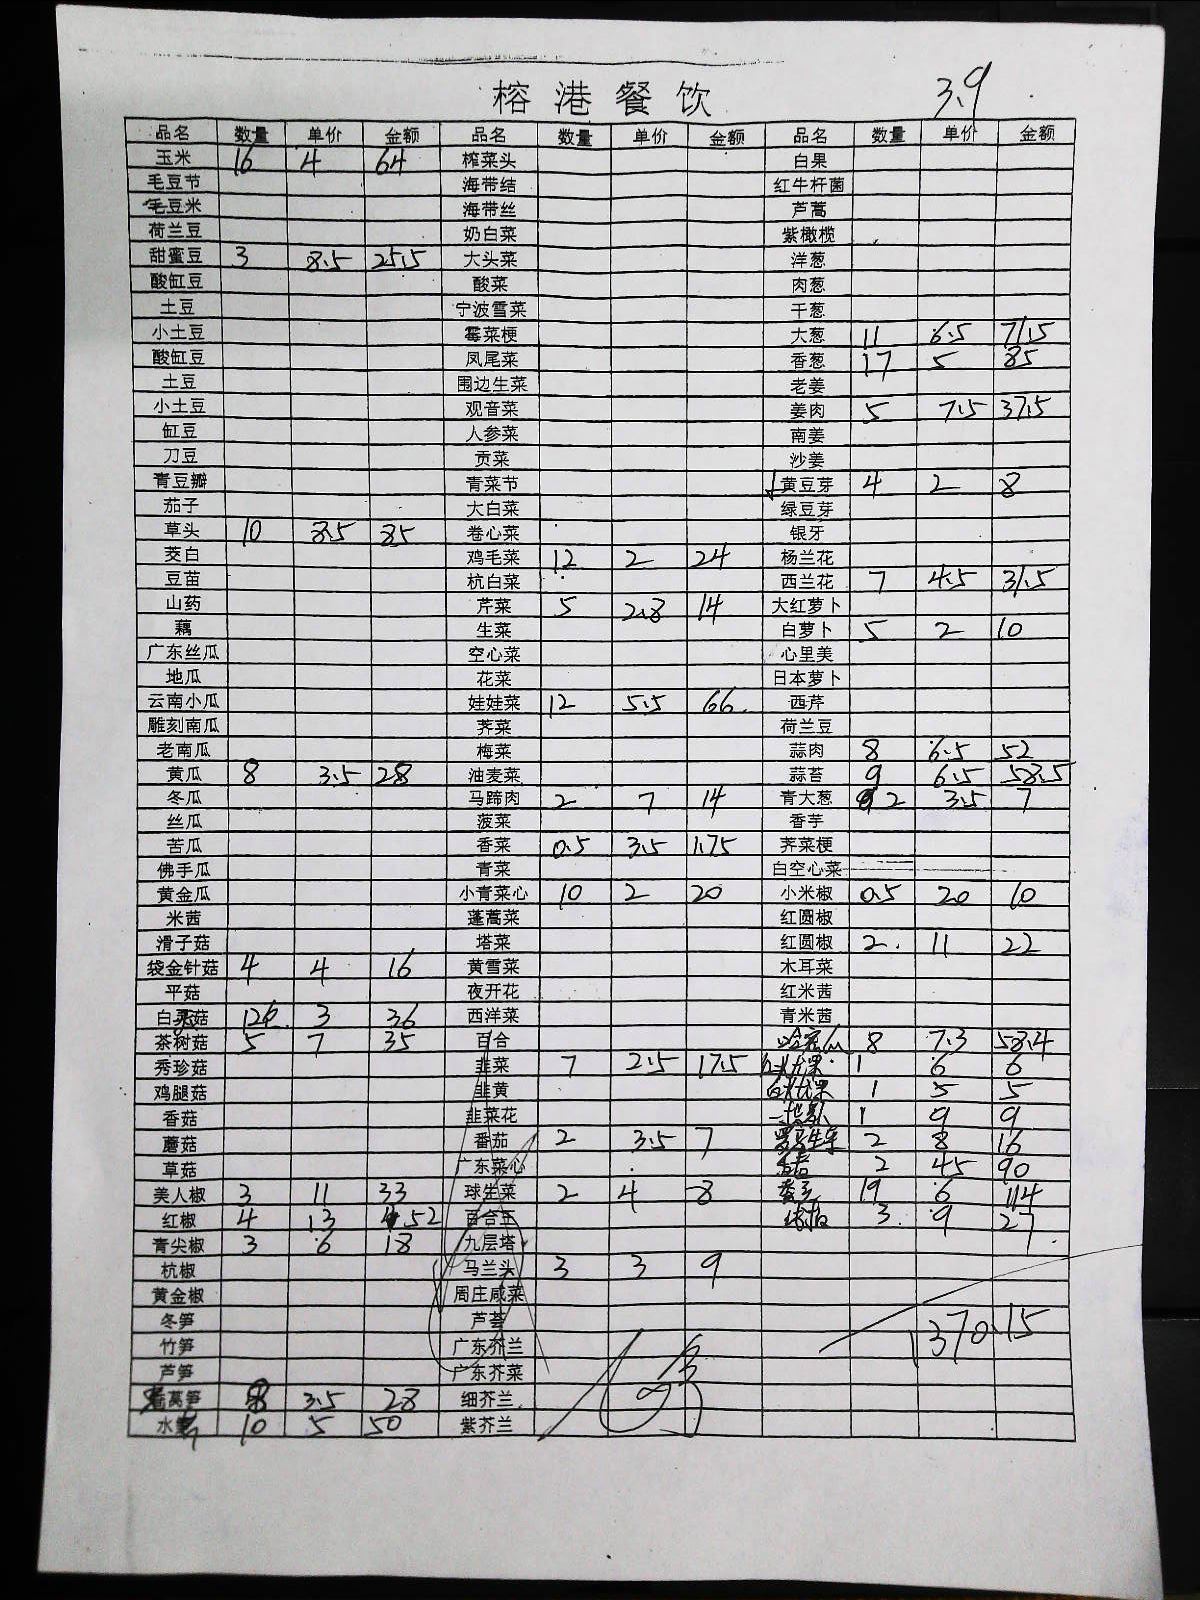 榕港餐饮 3.9
品名 数量 单价 金额 品名 数量 单价 金额 品名 数量 单价 金额
玉米 16 4 64 榨菜头 白果
毛豆节 海带结 红牛杆菌
毛豆米 海带丝 芦蒿
荷兰豆 奶白菜 紫橄榄
甜蜜豆 3 8.5 25.5 大头菜 洋葱
酸缸豆 酸菜 肉葱
土豆 宁波雪菜 干葱
小土豆 霉菜梗 大葱 11 6.5 71.5
酸缸豆 凤尾菜 香葱 17 5 85
土豆 围边生菜 老姜
小土豆 观音菜 姜肉 5 7.5 37.5
缸豆 人参菜 南姜
刀豆 贡菜 沙姜
青豆瓣 青菜节 黄豆芽 4 2 8
茄子 大白菜 绿豆芽
草头 10 8.5 85 卷心菜 银牙
茭白 鸡毛菜 12 2 24 杨兰花
豆苗 杭白菜 西兰花 7 4.5 31.5
山药 芹菜 5 2.8 14 大红萝卜
藕 生菜 白萝卜 5 2 10
广东丝瓜 空心菜 心里美
地瓜 花菜 日本萝卜
云南小瓜 娃娃菜 12 5.5 66 西芹
雕刻南瓜 荠菜 荷兰豆
老南瓜 梅菜 蒜肉 8 6.5 52
黄瓜 8 3.5 28 油麦菜 蒜苔 9 6.5 58.5
冬瓜 马蹄肉 2 7 14 青大葱 2 3.5 7
丝瓜 菠菜 香芋
苦瓜 香菜 0.5 3.5 1.75 荠菜梗
佛手瓜 青菜 白空心菜
黄金瓜 小青菜心 10 2 20 小米椒 0.5 20 10
米茜 蓬蒿菜 红圆椒
滑子菇 塔菜 红圆椒 2 11 22
袋金针菇 4 4 16 黄雪菜 木耳菜
平菇 夜开花 红米茜
白灵菇 12 3 36 西洋菜 青米茜
茶树菇 5 7 35 百合 哈密瓜 8 7.3 58.4
秀珍菇 韭菜 7 2.5 17.5 1 6 6
鸡腿菇 韭黄 1 5 5
香菇 韭菜花 1 9 9
蘑菇 番茄 2 3.5 7 罗马生菜 2 8 16
草菇 广东菜心 2 45 90
美人椒 3 11 33 球生菜 2 4 8 19 6 114
红椒 4 13 52 百合王 3 9 27
青尖椒 3 6 18 九层塔
杭椒 马兰头 3 3 9
黄金椒 周庄咸菜
冬笋 芦荟 1370.15
竹笋 广东芥兰
芦笋 广东芥菜
莴笋 8 3.5 28 细芥兰
水 10 5 50 紫芥兰